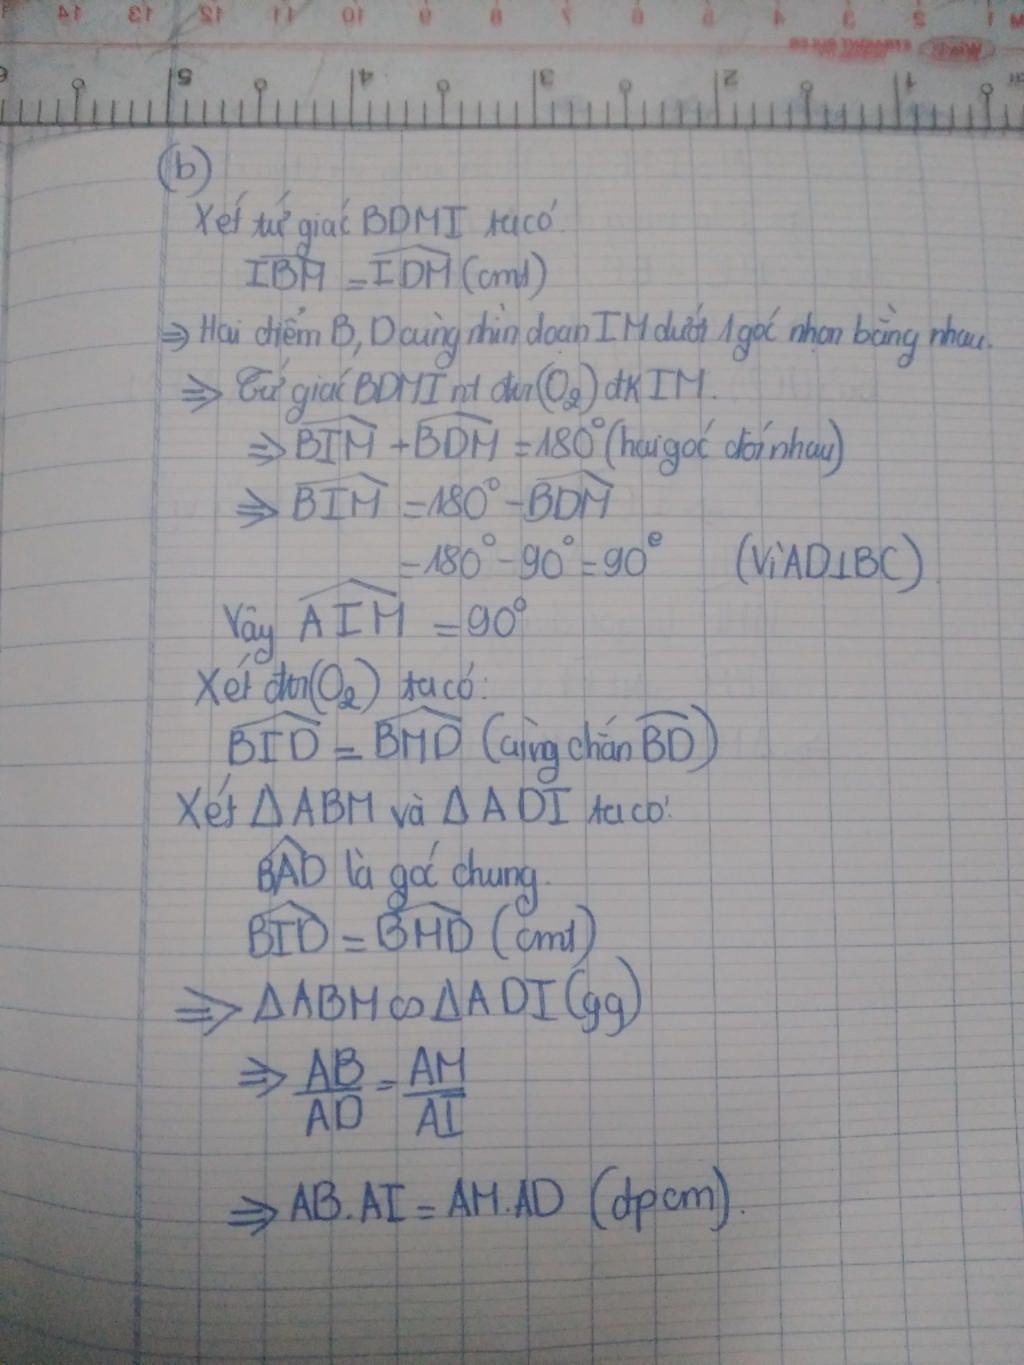 14 13 12 11 10 9 8 7 6 5 4 3 2 1
5 4 3 2 1
(b)
Xét tứ giác BDMI ta có
IBM = IDM (cmt)
⇒ Hai điểm B, D cùng nhìn đoạn IM dưới 1 góc nhọn bằng nhau.
⇒ Tứ giác BDMI nt đtr(O₂) đk IM.
⇒ BIM + BDM = 180° (hai góc đối nhau)
⇒ BIM = 180° - BDM
= 180° - 90° = 90° (Vì AD⊥BC)
Vậy AIM = 90°
Xét đtr(O₂) ta có:
BID = BMD (cùng chắn BD)
Xét ΔABM và ΔADI ta có:
BAD là góc chung.
BID = BMD (cmt)
⇒ ΔABM ∽ ΔADI (gg)
⇒ AB/AD = AM/AI
⇒ AB.AI = AM.AD (đpcm).